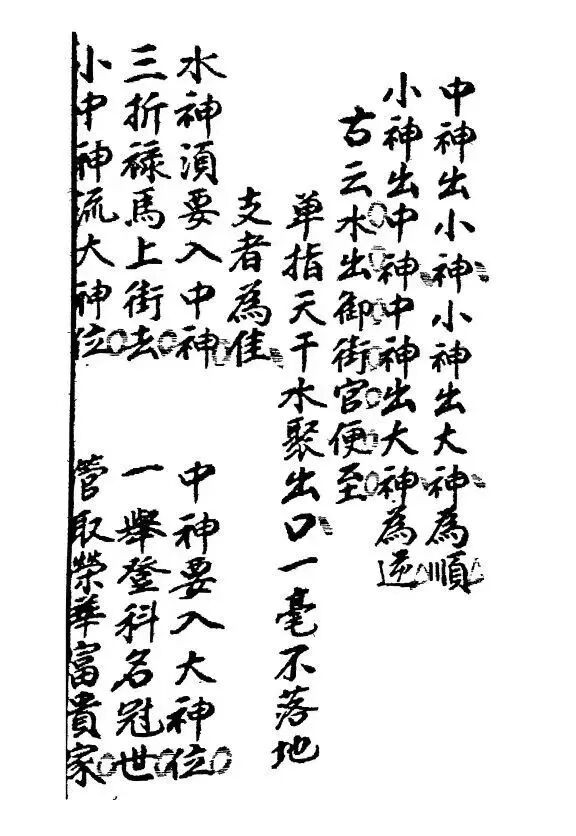 中神出小神小神出大神為順
小神出中神中神出大神為逆
古云水出御街官便至
單指天干水聚出口一毫不落地
支者為佳
水神須要入中神 中神要入大神位
三折祿馬上街去 一舉登科名冠世
小中神流大神位 管取榮華富貴家